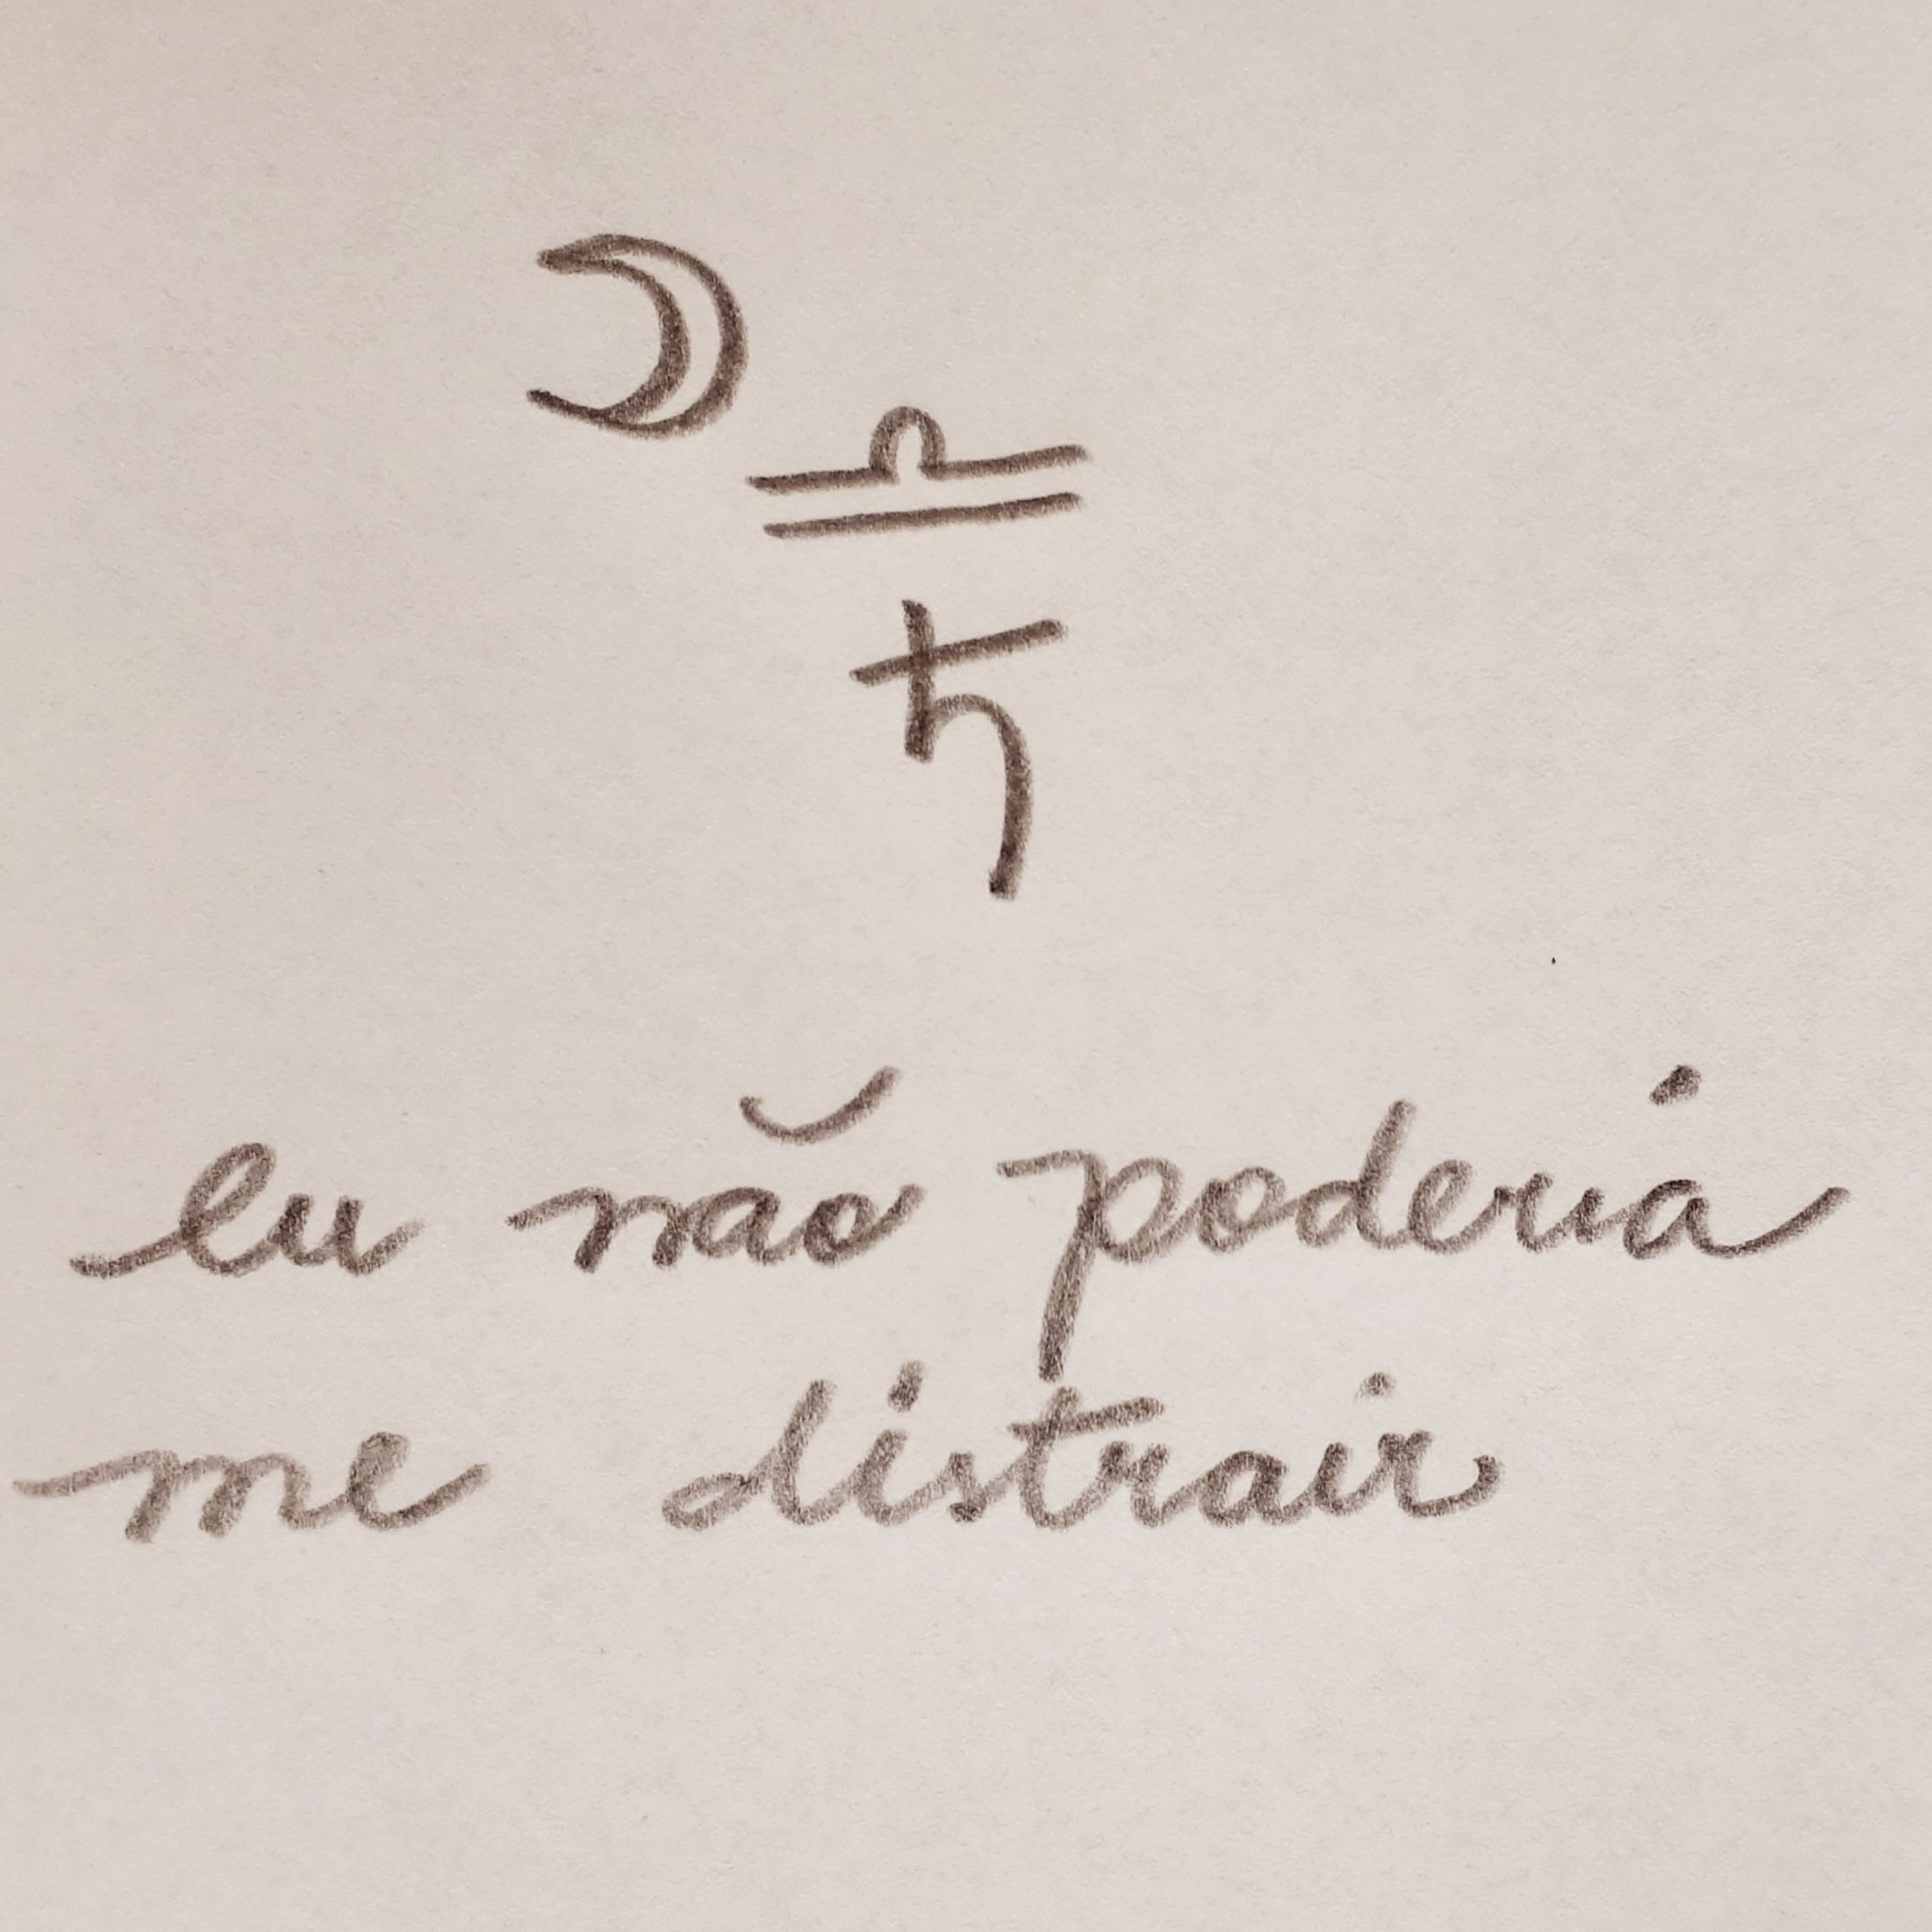 ☽
♎
♄
eu não poderia
me distrair